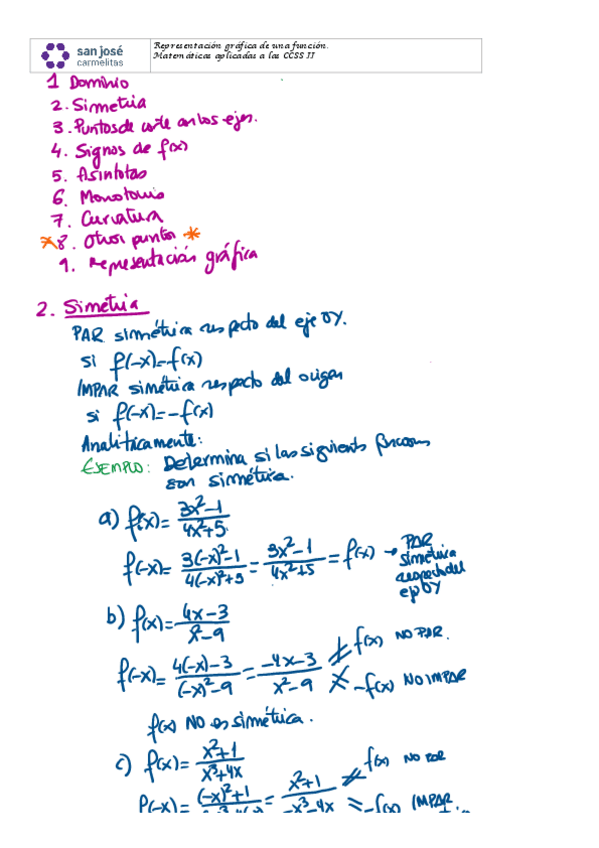 san josé
carmelitas
Representación gráfica de una función.
Matemáticas aplicadas a las CCSS II
1 Dominio
2. Simetria
3. Puntos de corte con los ejes.
4. Signos de f(x)
5. Asíntotas
6. Monotonia
7. Curvatura
*8. Otros puntos *
9. Representación gráfica
2. Simetria
PAR simétrica respecto del eje OY.
si f(-x)=f(x)
IMPAR simétrica respecto del origen
si f(-x)=-f(x)
Analíticamente:
EJEMPLO: Determina si las siguients funciones
son simétrica.
a) f(x)= 3x²-1 / 4x²+5
f(-x)= 3(-x)²-1 / 4(-x)²+5 = 3x²-1 / 4x²+5 = f(x) → PAR
simétrica
respecto del
eje OY
b) f(x)= 4x-3 / x²-9
f(-x)= 4(-x)-3 / (-x)²-9 = -4x-3 / x²-9 ≠ f(x) NO PAR.
≠ -f(x) NO IMPAR
f(x) NO es simétrica.
c) f(x)= x²+1 / x³+4x
≠ f(x) NO PAR
f(-x)= (-x)²+1 = x²+1 / -x³-4x = -f(x) IMPAR